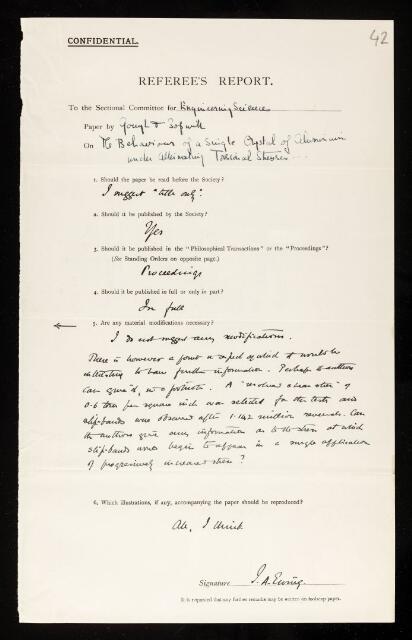 42
CONFIDENTIAL.
REFEREE'S REPORT.
To the Sectional Committee for Engineering Science
Paper by Gough & Sopwith
On The Behaviour of a Single Crystal of Aluminium
under Alternating Torsional Stresses
1. Should the paper be read before the Society?
I suggest "title only".
2. Should it be published by the Society?
Yes
3. Should it be published in the "Philosophical Transactions" or the "Proceedings"?
(See Standing Orders on opposite page.)
Proceedings
4. Should it be published in full or only in part?
In full
5. Are any material modifications necessary?
I do not suggest any modifications.
There is however a point in respect of which it would be
interesting to have further information. Perhaps the authors
can give it, in a footnote. A "resolved shear stress" of
0.6 tons per square inch was selected for the tests and
slip-bands were observed after 1.142 million reversals. Can
the authors give any information as to the stress at which
slip-bands begin to appear in a single application
of progressively increased stress?
6. Which illustrations, if any, accompanying the paper should be reproduced?
All, I think
Signature J. A. Ewing.
It is requested that any further remarks may be written on foolscap paper.